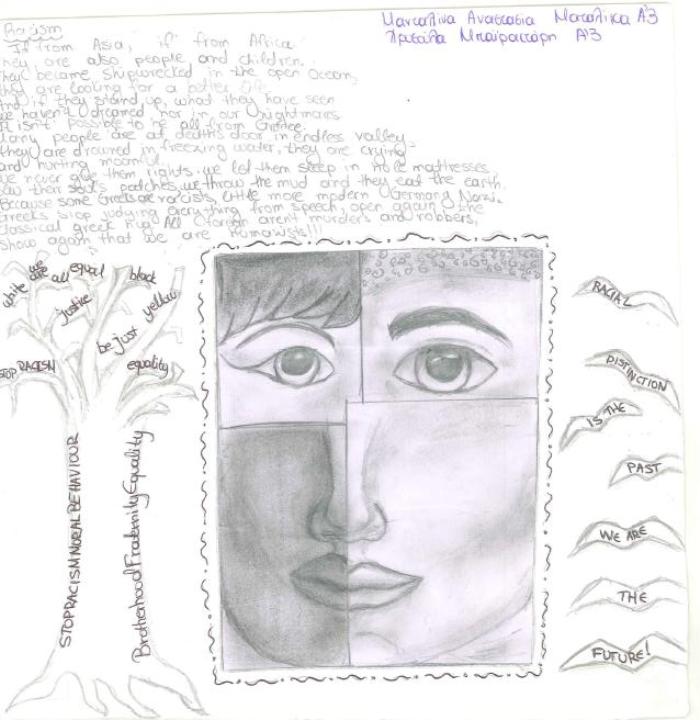 Μανταλίνα Αναστασία Ματαλίκα Α'3
Χρυσούλα Μπαϊρακτάρη Α'3
Racism
If from Asia, if from Africa
they are also people and children.
They became shipwrecked in the open Ocean,
they are looking for a better life
And if they stand up, what they have seen
we haven't dreamed nor in our nightmares
It isn't possible to be all from Greece.
Many people are at death's door in endless valley,
they are drowned in freezing water, they are crying
and hunting mournful.
We never give them rights, we let them sleep in hole mattresses
saw their soul's patches, we throw the mud and they eat the earth.
Because some Greeks are racists, little more modern Germans Nazi.
Greeks stop judging everything from speech, open again the
classical greek mind All foreign aren't murders and robbers,
Show again that we are humanists!!!
white we are all equal black
justice yellow
be just
STOP RACISM equality
STOP RACISM MORAL BEHAVIOUR
Brotherhood Fraternity Equality
RACIAL
DISTINCTION
IS THE
PAST
WE ARE
THE
FUTURE!